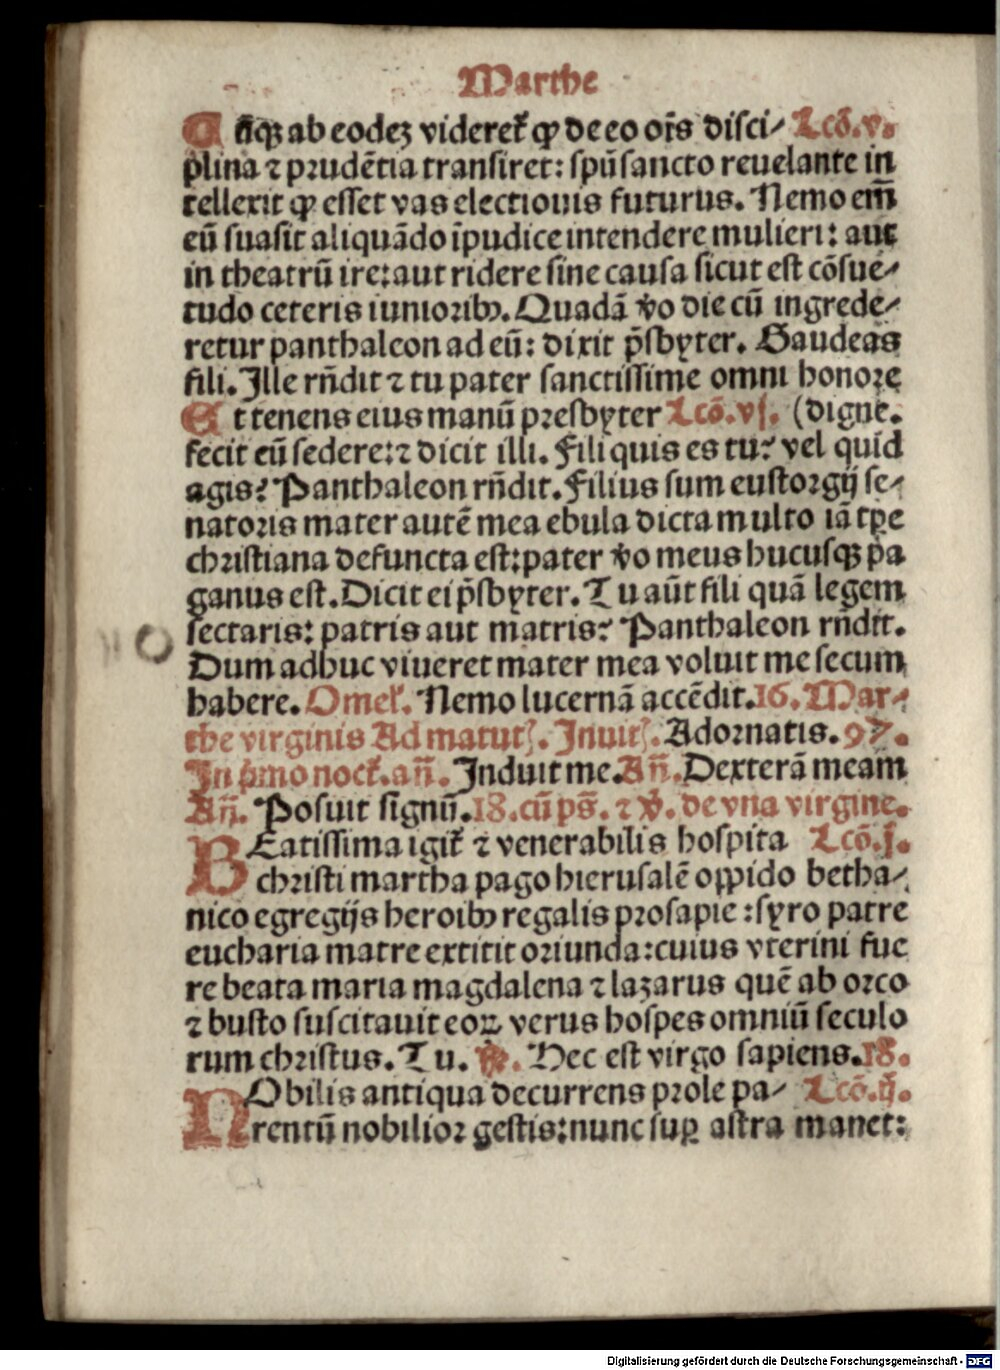 Marthe
C ūqꝫ ab eodeꝫ videret᷑ ꝙ de eo oīs disci⸗ Lcō.v.
plina ⁊ prudētia transiret: spūsancto reuelante in
tellexit ꝙ esset vas electiouis futurus. Nemo em̄
eū suasit aliquādo īpudice intendere mulieri: aut
in theatrū ire: aut ridere sine causa sicut est cōsue⸗
tudo ceteris iunioribꝰ. Quadā ꝟo die cū ingrede⸗
retur panthaleon ad eū: dixit p̄sbyter. Gaudeas
fili. Ille rn̄dit ⁊ tu pater sanctissime omni honore
E t tenens eius manū presbyter Lcō.vj. (digne.
fecit eū sedere: ⁊ dicit illi. Fili quis es tu? vel quid
agis? Panthaleon rn̄dit. Filius sum eustorgij se⸗
natoris mater autē mea ebula dicta multo iā tp̄e
christiana defuncta est: pater ꝟo meus hucusqꝫ pa
ganus est. Dicit ei p̄sbyter. Tu aūt fili quā legem
sectaris: patris aut matris? Panthaleon rn̄dit.
Dum adhuc viueret mater mea voluit me secum
habere. Omel᷑. Nemo lucernā accēdit. 16. Mar⸗
the virginis Ad matut᷑. Inuit᷑. Adornatis. 97.
In p̄mo noct᷑. an̄. Induit me. An̄. Dexterā meam
An̄. Posuit signū. 18. cū ps̄. ⁊ ꝟ. de vna virgine.
BEatissima igit᷑ ⁊ venerabilis hospita Lcō.j.
christi martha pago hierusalē oppido betha⸗
nico egregijs heroibꝰ regalis prosapie: syro patre
eucharia matre extitit oriunda: cuius vterini fue
re beata maria magdalena ⁊ lazarus quē ab orco
⁊ busto suscitauit eoꝝ verus hospes omniū seculo
rum christus. Tu. ꝶ. Hec est virgo sapiens. 18.
NObilis antiqua decurrens prole pa⸗ Lcō.ij.
rentū nobilior gestis: nunc suꝑ astra manet:
Digitalisierung gefördert durch die Deutsche Forschungsgemeinschaft - DFG